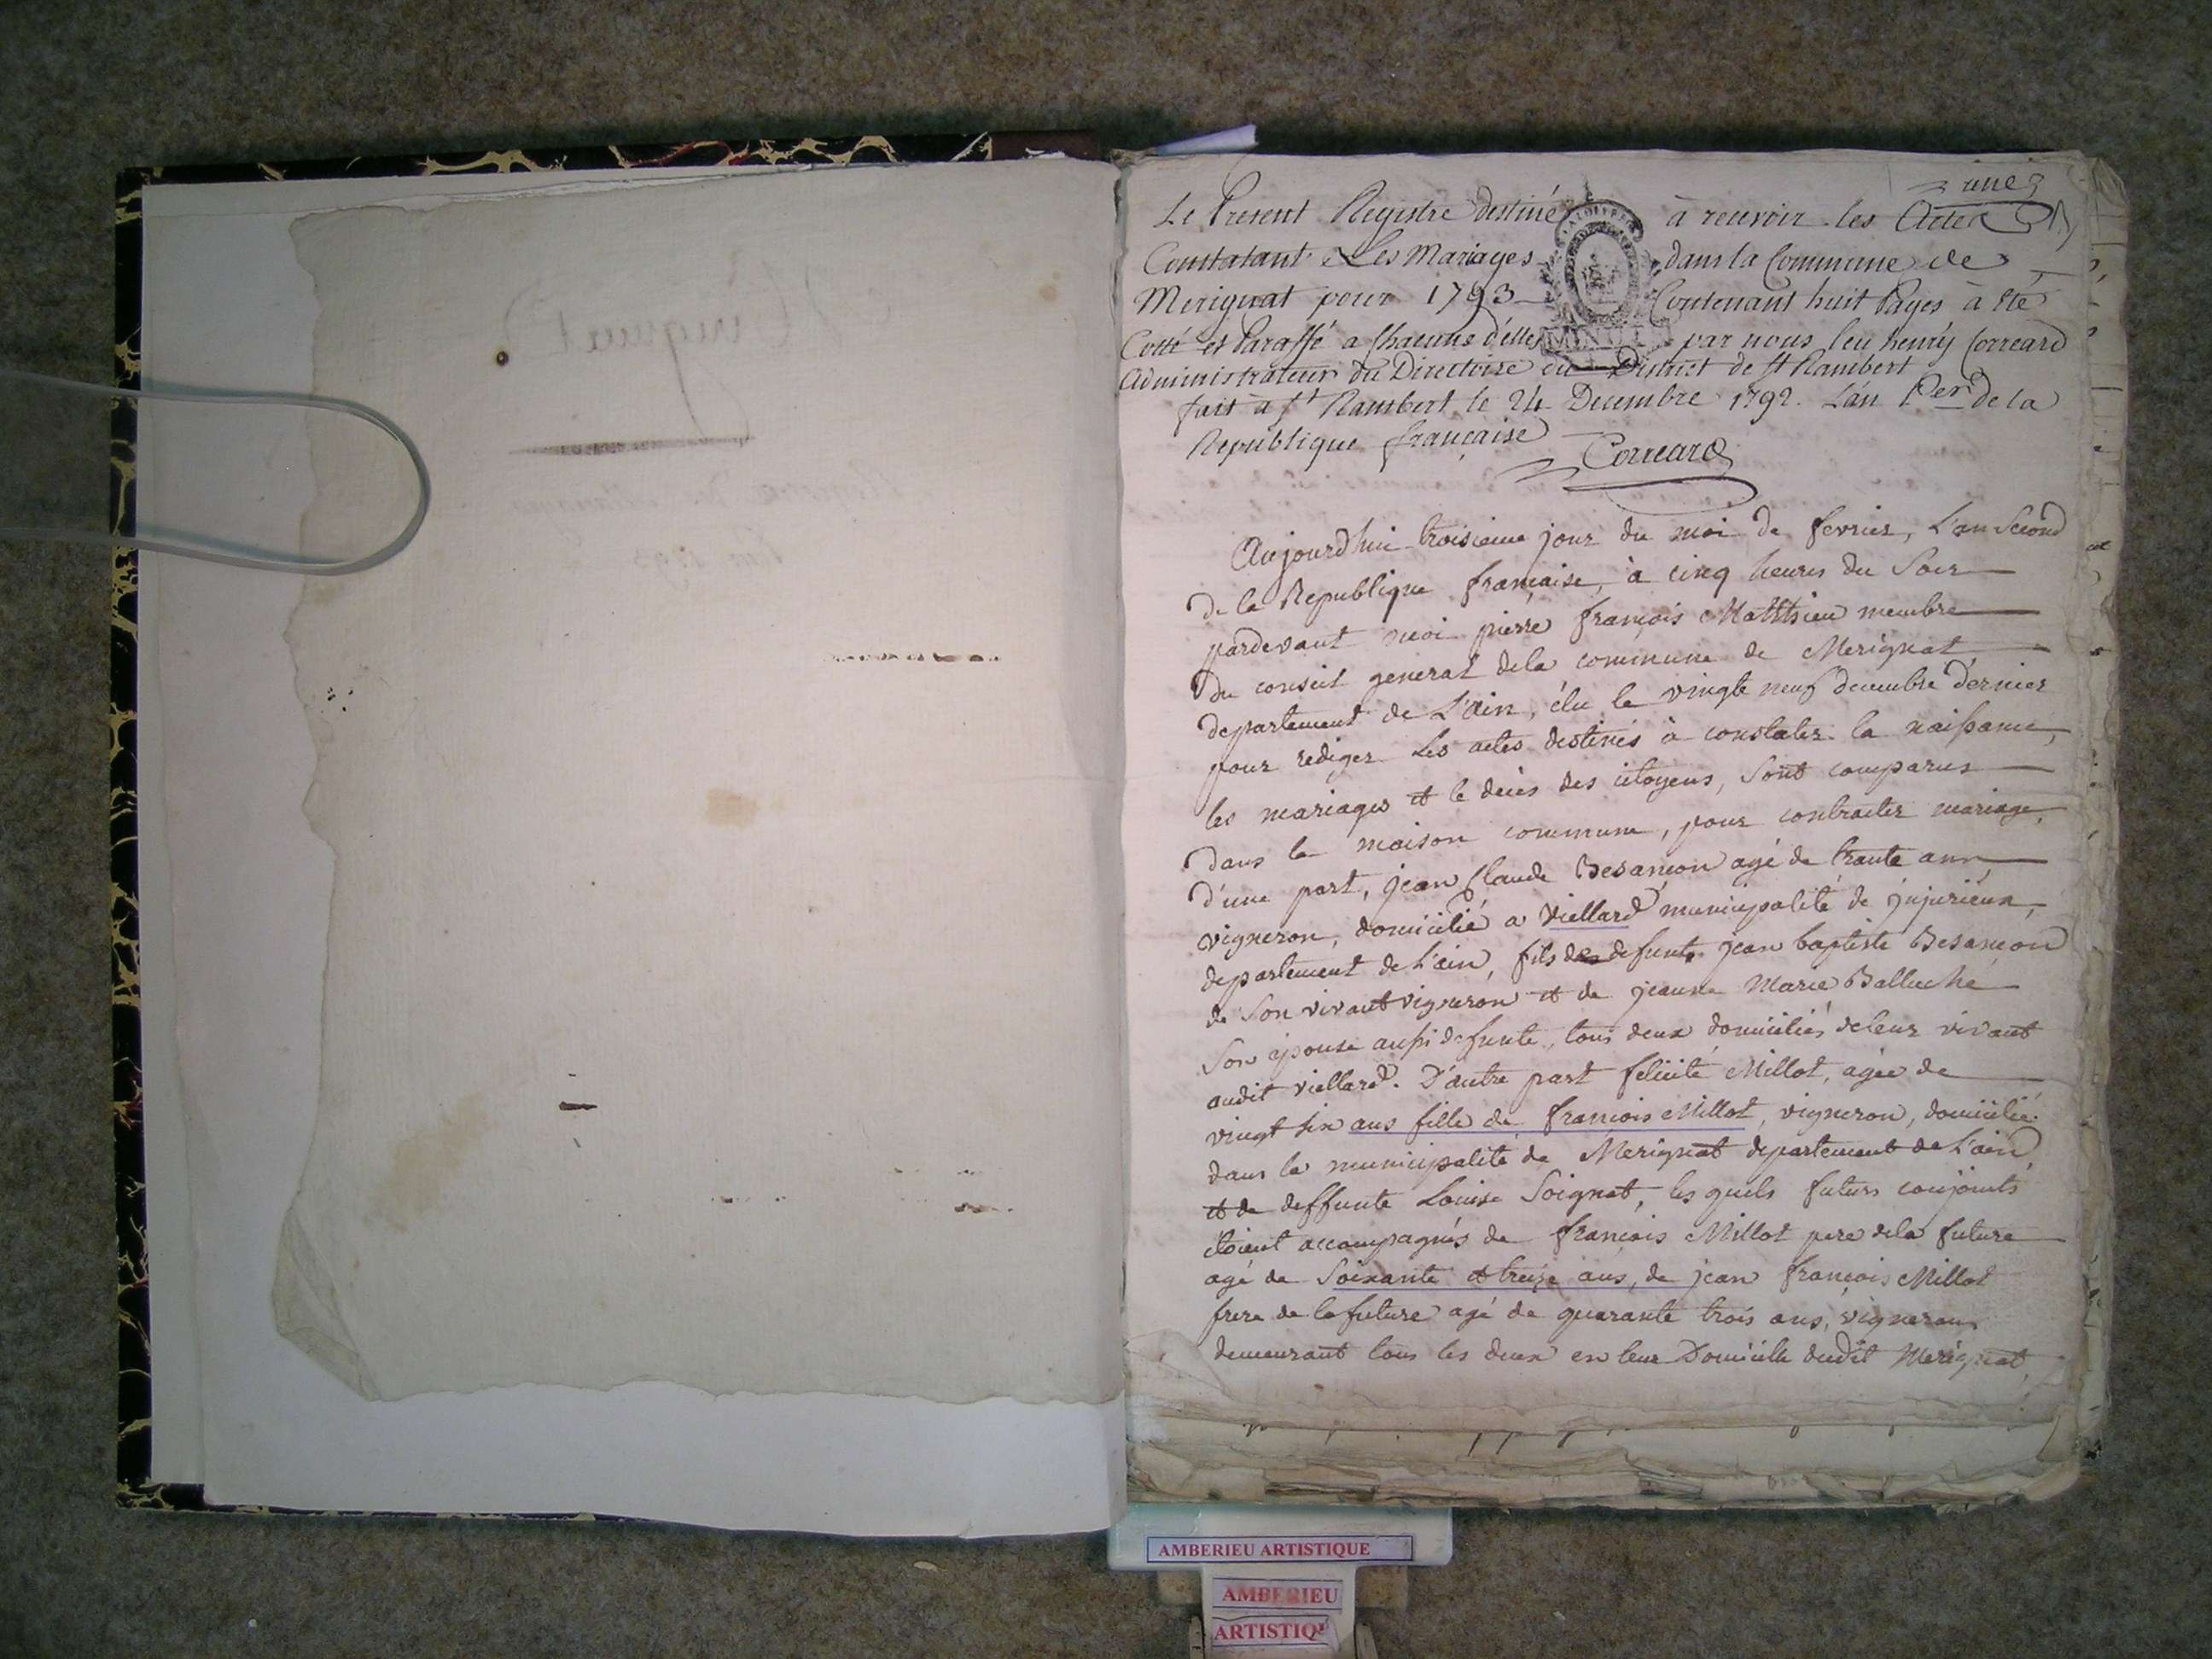 une
Le Present Registre destiné à recevoir les Actes
Constatant Les Mariages dans la Commune de
Merignat pour 1793 Contenant huit Pages à été
Cotté et Paraffé a Chacune d'elles par nous leu henry Correard
Administrateur du Directoire du District de St Rambert
fait à St Rambert le 24 Decembre 1792. L'an 1er de la
Republique française
Correard
MINUTE
Aujourd'hui troisieme jour du moi de fevrier, L'an Second
de la Republique française, à cinq heures du Soir
pardevant moi pierre françois Matthieu membre
du conseil general dela commune de Merignat
departement de L'ain, élu le vingte neuf decembre dernier
pour rediger Les actes destinés à constater la naissance,
les mariages et le decès des citoyens, Sont comparus
Dans la maison commune, pour contracter mariage,
D'une part, jean Claude Besançon agé de trante ans
vigneron, domicilié a Viellard municipalité de jujurieux,
departement de L'ain, fils de defunt jean baptiste Besançon
de Son vivant vigneron et de jeanne Marie Balluche
Son epouse aussi defunte, tous deux domiciliés deleur vivant
audit viellard. D'autre part felicité Millot, agée de
vingt six ans fille de françois Millot, vigneron, domicilié
dans la municipalité de Merignat departement de L'ain
et de deffunte Louise Soignat, les quels futurs conjoints
étoient accompagnés de françois Millot pere dela future
agé de Soixante et treize ans, de jean françois Millot
frere de la future agé de quarante trois ans, vignerons
demeurant tous les deux en leur Domicille dudit Merignat
AMBERIEU ARTISTIQUE
AMBERIEU
ARTISTIQ